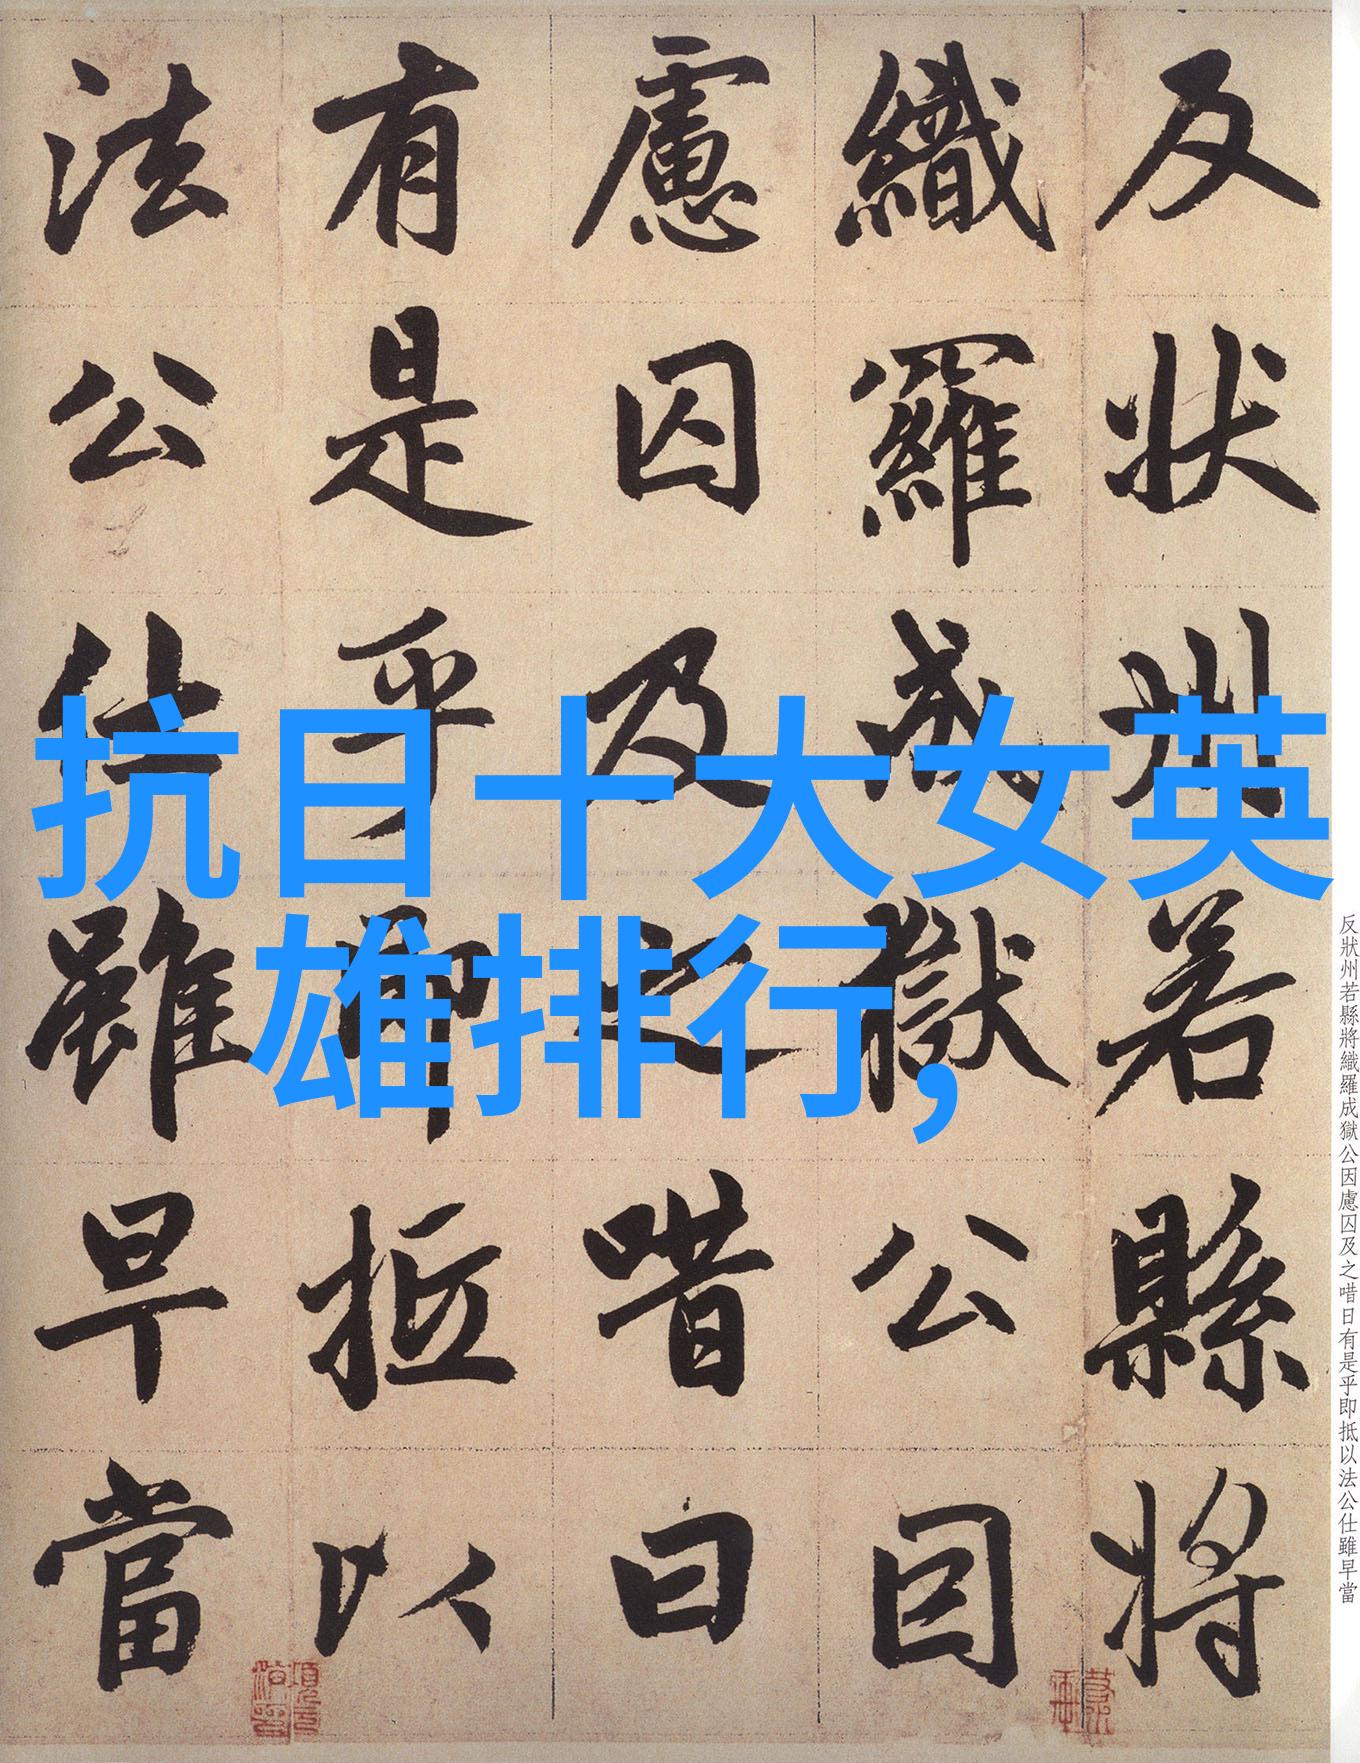 反状州若縣將
織羅成獄公因
慮囚及之唶曰
有是乎即抵以
法公仕雖早當
抗日十大女英
雄排行,
反狀州若縣將織羅成獄公因慮囚及之唶日有是乎即抵以法公仕雖早當